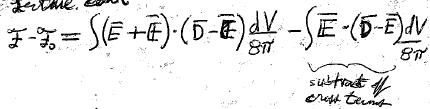 ℱ - ℱ₀ = ∫(E̅ + E̅)·(D̅ - E̅) dV/8π - ∫E̅·(D̅ - E̅) dV/8π
subtract off
cross terms